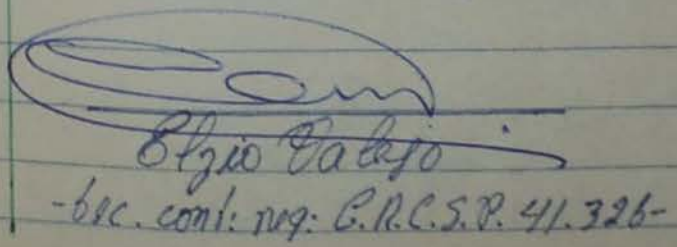 Elzio Valejo
-tec. cont: reg: C.R.C.S.P. 41.326-